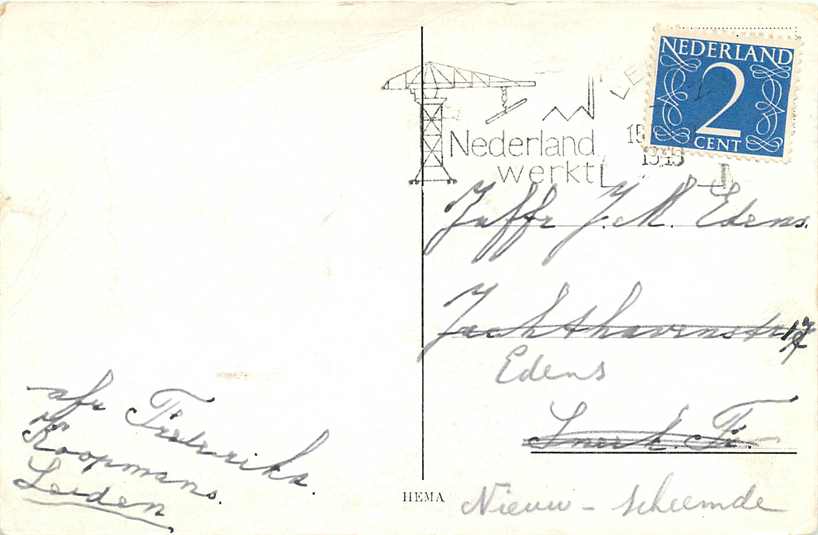 NEDERLAND
2
CENT
LE
15
1949
Nederland
werkt
Juffr J. M. Edens.
Jachthavenstr 17
Edens
Sneek. Fr.
afz Frederiks
Koopmans.
Leiden
HEMA
Nieuw - Scheemda